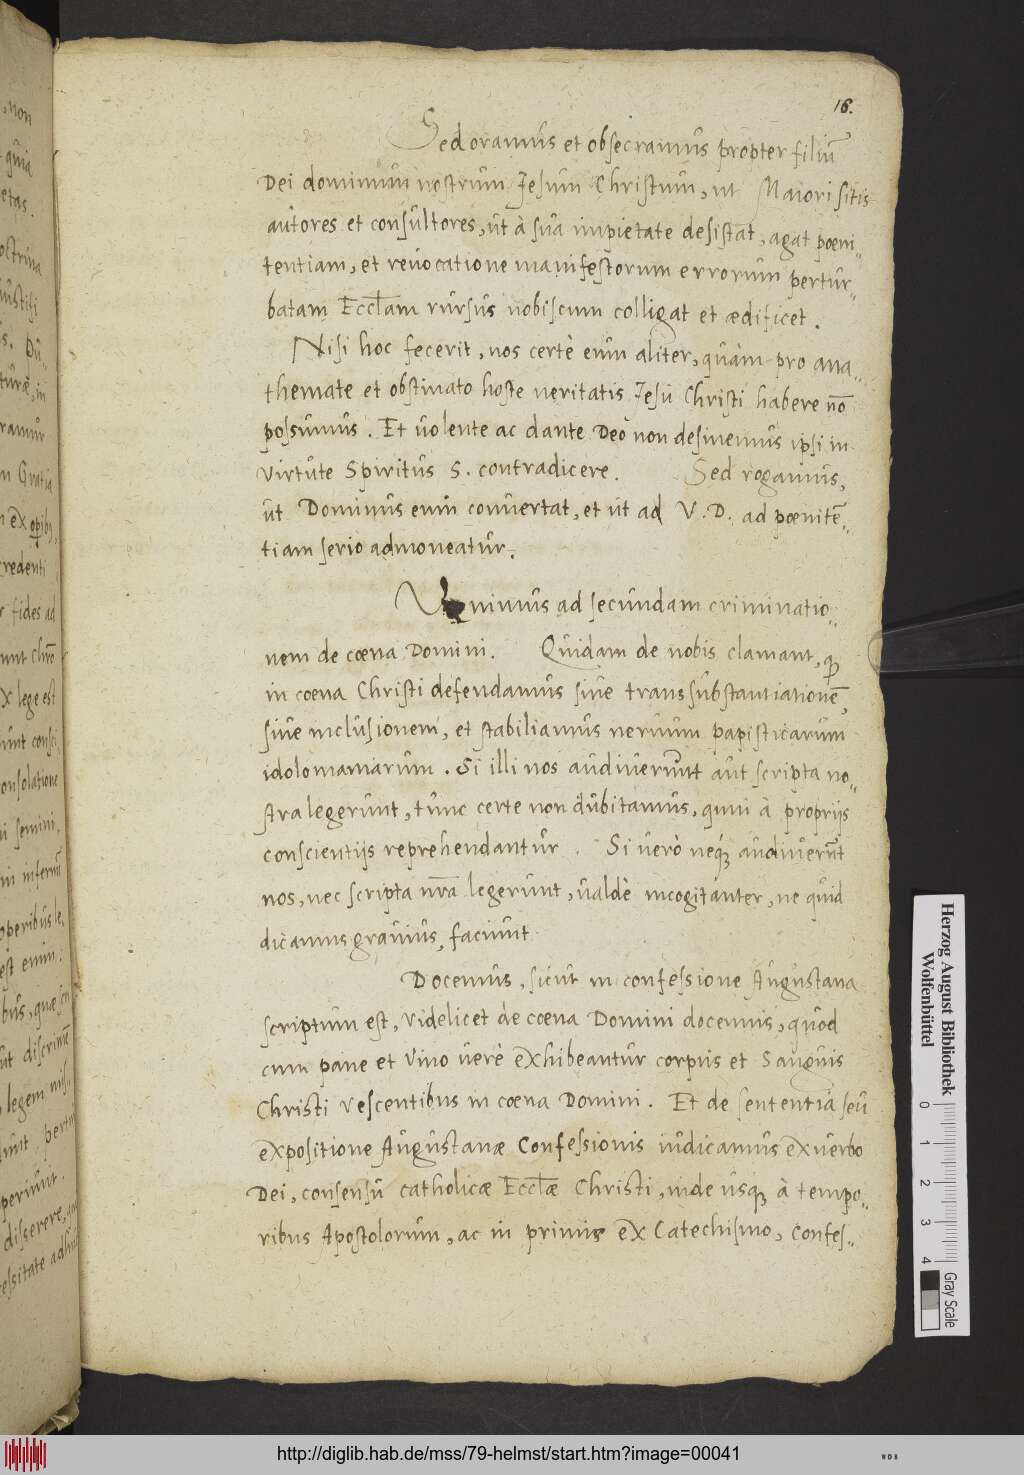 16.
Sed oramus et obsecramus propter filiū
Dei dominum nostrum Jesum Christum, ut Maiori sitis
autores et consultores, ut à sua impietate desistat, agat pœni„
tentiam, et reuocatione manifestorum errorum pertur„
batam Eccl̄am rursus nobiscum colligat et ædificet.
Nisi hoc fecerit, nos certè eum aliter, quàm pro ana„
themate et obstinato hoste ueritatis Jesu Christi habere nō
possumus. Et uolente ac dante Deo non desinemus ipsi in
virtute Spiritus S. contradicere. Sed rogamus,
ut Dominus eum conuertat, et ut ad V. D. ad pœnitē„
tiam serio admoneatur.
Venimus ad secundam criminatio„
nem de cœna Domini. Quidam de nobis clamant, qp
in cœna Christi defendamus siue transsubstantiationē,
siue inclusionem, et stabiliamus neruum papisticarum
idolomaniarum. Si illi nos audiuerunt aut scripta no„
stra legerunt, tunc certe non dubitamus, quin à proprijs
conscientijs reprehendantur. Si uerò neqꝫ audiuerunt
nos, nec scripta nr̄a legerunt, ualdè incogitanter, ne quid
dicamus grauius, faciunt
Docemus, sicut in confessione Augustana
scriptum est, videlicet de cœna Domini docemus, quod
cum pane et vino uerè exhibeantur corpus et Sanguis
Christi vescentibus in cœna Domini. Et de sententia seu
expositione Augustanæ Confessionis iudicamus ex uerbo
Dei, consensu catholicæ Eccl̄æ Christi, inde usqꝫ à tempo„
ribus Apostolorum, ac in primis ex Catechismo, Confes„
, non
quia
etas.
octrina
iustifi
Du„
turæ, in
ramur
m Gratia
redenti
r fides ad
unt chrō
x lege est
unt consci
onsolatione
ni semini,
ni infernū
operibus le,
est enim.
discrimē
legem
periunt.
disserere,
essitate
Herzog August Bibliothek
Wolfenbüttel
0 1 2 3 4
Gray Scale
http://diglib.hab.de/mss/79-helmst/start.htm?image=00041
WDB